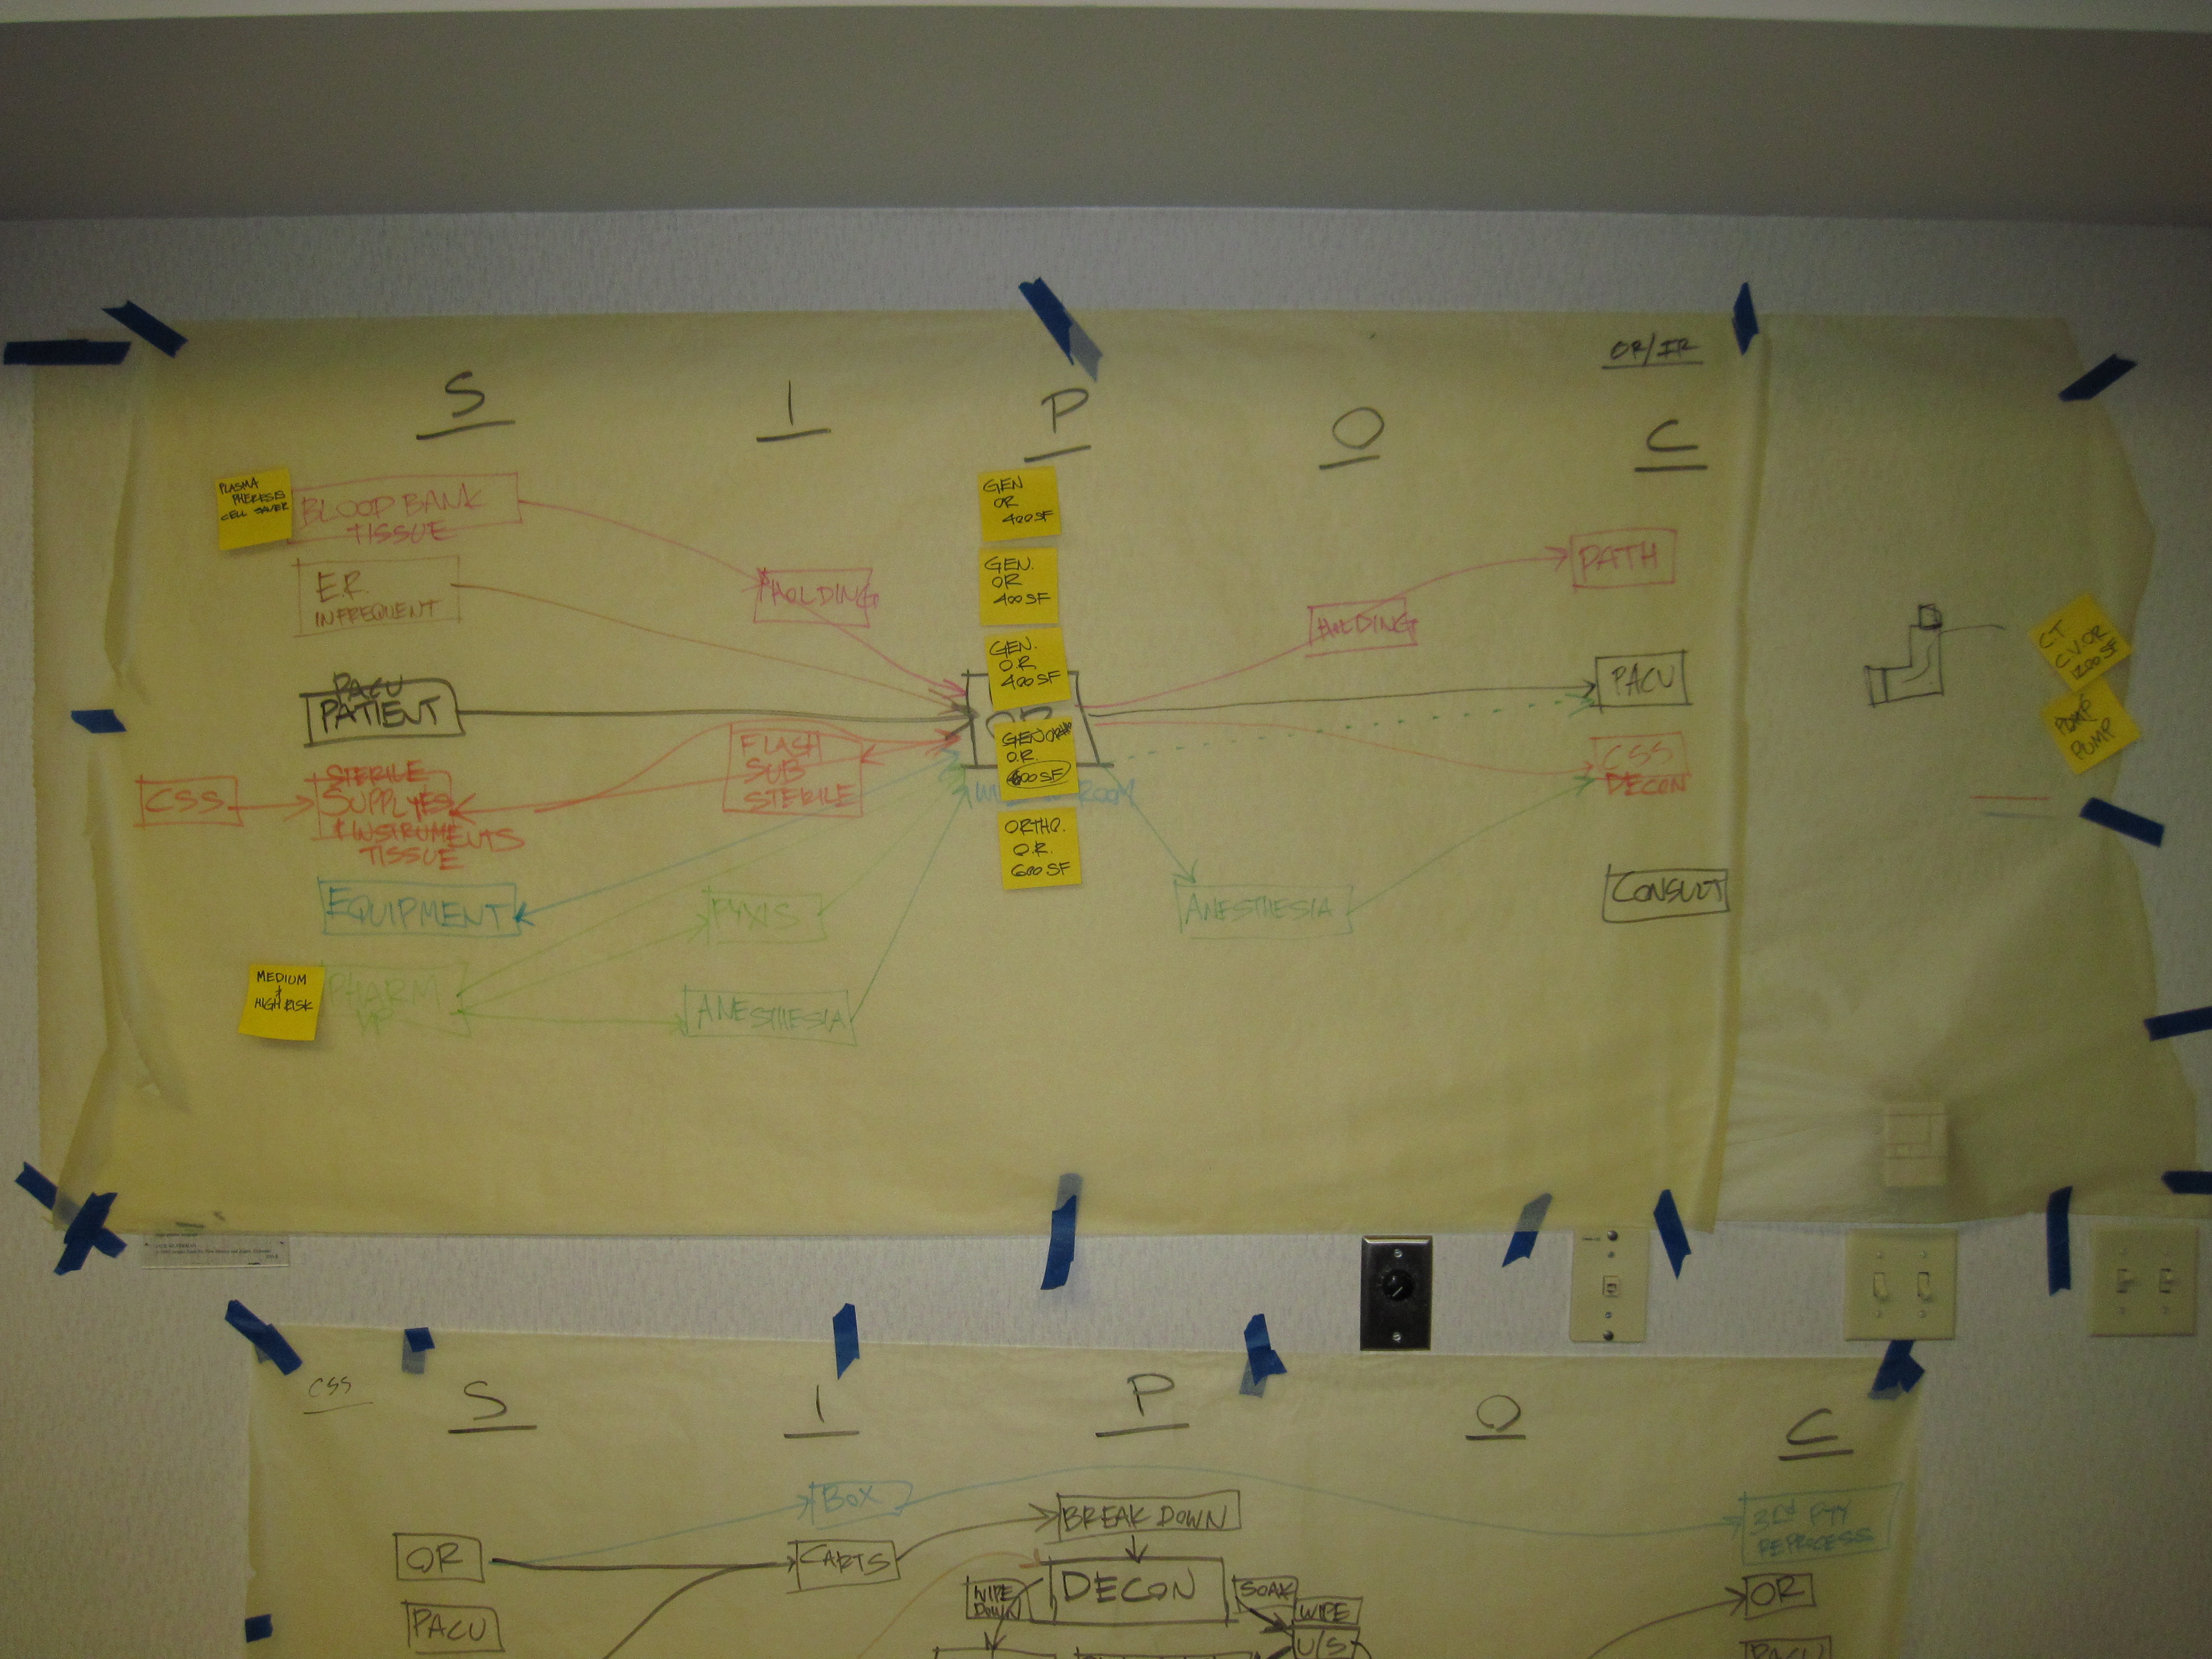 OR/IR
S
I
P
O
C
PLASMA
PHERESIS
CELL SAVER
BLOOD BANK
TISSUE
E.R.
INFREQUENT
PACU
PATIENT
CSS
STERILE
SUPPLYES
& INSTRUMENTS
TISSUE
EQUIPMENT
MEDIUM
&
HIGH RISK
PHARM
HOLDING
FLASH
SUB
STERILE
PYXIS
ANESTHESIA
GEN
OR
400 SF
GEN.
OR
400 SF
GEN.
O.R
400 SF
GEN
O.R.
600 SF
ROOM
ORTHO.
O.R.
600 SF
HOLDING
ANESTHESIA
PATH
PACU
CSS
DECON
CONSULT
CT
CV.OR
1200 SF
PUMP
PUMP
CSS
S
I
P
O
C
OR
PACU
BOX
CARTS
BREAK DOWN
DECON
WIPE
DOWN
SOAK
WIPE
U/S
3RD PTY
REPROCESS
OR
PACU